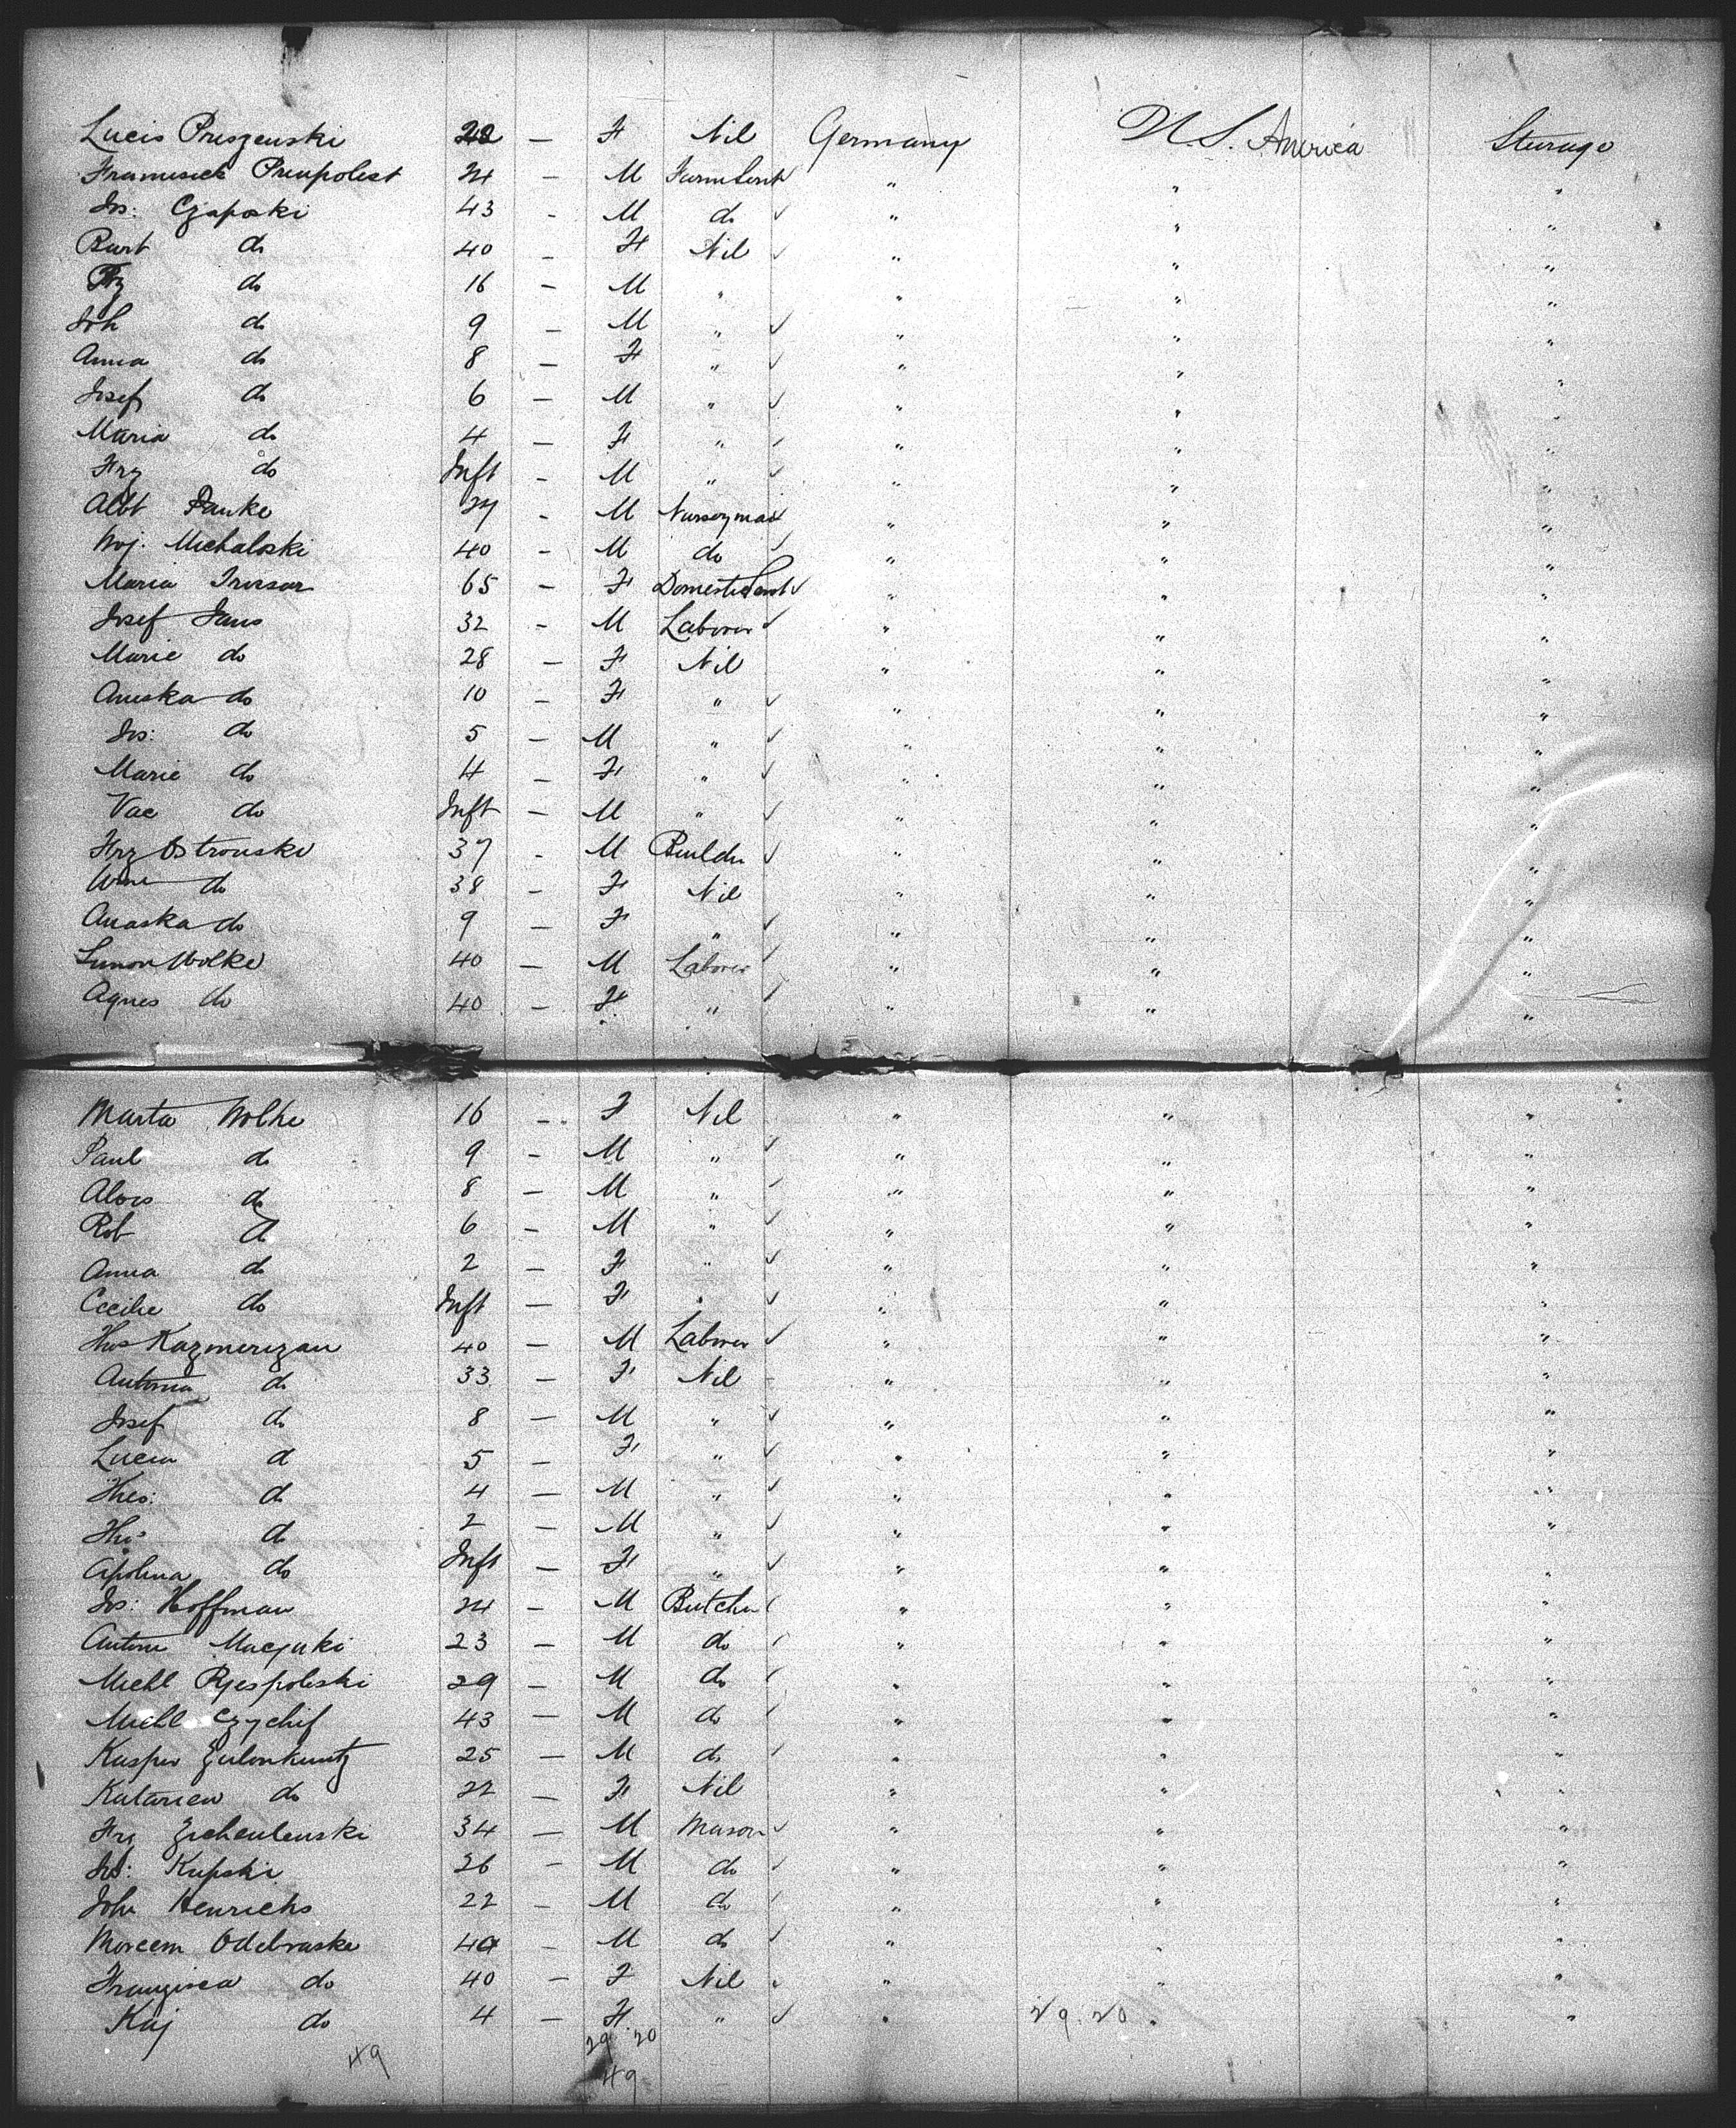 Lucis Pruszenski 22 — F Nil Germany U.S. America Steerage
Franuisick Prenpolest 24 — M Farm Servt " " "
Jos: Czaposki 43 - M do " " "
Burt do 40 - F Nil " " "
Frz do 16 - M " " " "
Joh do 9 - M " " " "
Anna do 8 — F " " " "
Josef do 6 — M " " " "
Maria do 4 — F " " " "
Frz do Inft - M " " " "
Albt Panke 27 - M Nurseyman " " "
Woj. Michaloski 40 - M do " " "
Maria 65 — F Domestic Servt " " "
Josef Jans 32 - M Laborer " " "
Marie do 28 — F Nil " " "
Anuska do 10 - F " " " "
Jos: do 5 — M " " " "
Marie do 4 — F " " " "
Vac do Inft — M " " " "
Frz Ostrouski 37 - M Builder " " "
do 38 - F Nil " " "
Anaska do 9 — F " " " "
Simon Wolke 40 — M Laborer " " "
Agnes do 40 — F " " " "
Marta Wolke 16 — F Nil " " "
Paul do 9 - M " " " "
Alois do 8 — M " " " "
Rob do 6 — M " " " "
Anna do 2 — F " " " "
Cecilie do Inft — F " " " "
Thos Kazmerizan 40 — M Laborer " " "
Antonia do 33 — F Nil " " "
Josef do 8 — M " " " "
Lucia do 5 — F " " " "
Theo: do 4 — M " " " "
Tho: do 2 — M " " " "
Apolina do Inft — F " " " "
Jos: Hoffman 24 — M Butcher " " "
Anton Maczuki 23 — M do " " "
Michl Rzespoleski 29 — M do " " "
Michl Czychif 43 — M do " " "
Kasper Zulonkuntz 25 — M do " " "
Katarien do 22 — F Nil " " "
Frz Zicheulenski 34 — M Mason " " "
Jos: Kupski 26 - M do " " "
John Henrichs 22 — M do " " "
Morcem Odebraske 40 — M do " " "
Franzisca do 40 — F Nil " " "
Kaj do 4 — F " " 29.20 " "
49 29 20
49